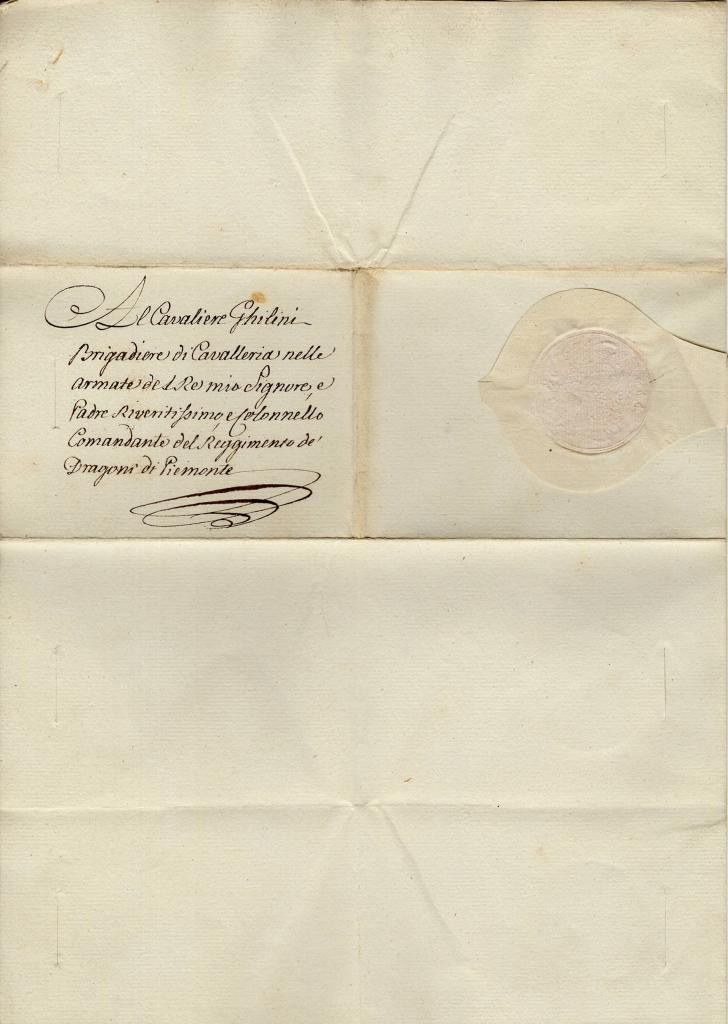 Al Cavaliere Ghilini
Brigadiere di Cavalleria nelle
armate del Re mio Signore, e
Padre Riveritissimo e Colonnello
Comandante del Reggimento de'
Dragoni di Piemonte